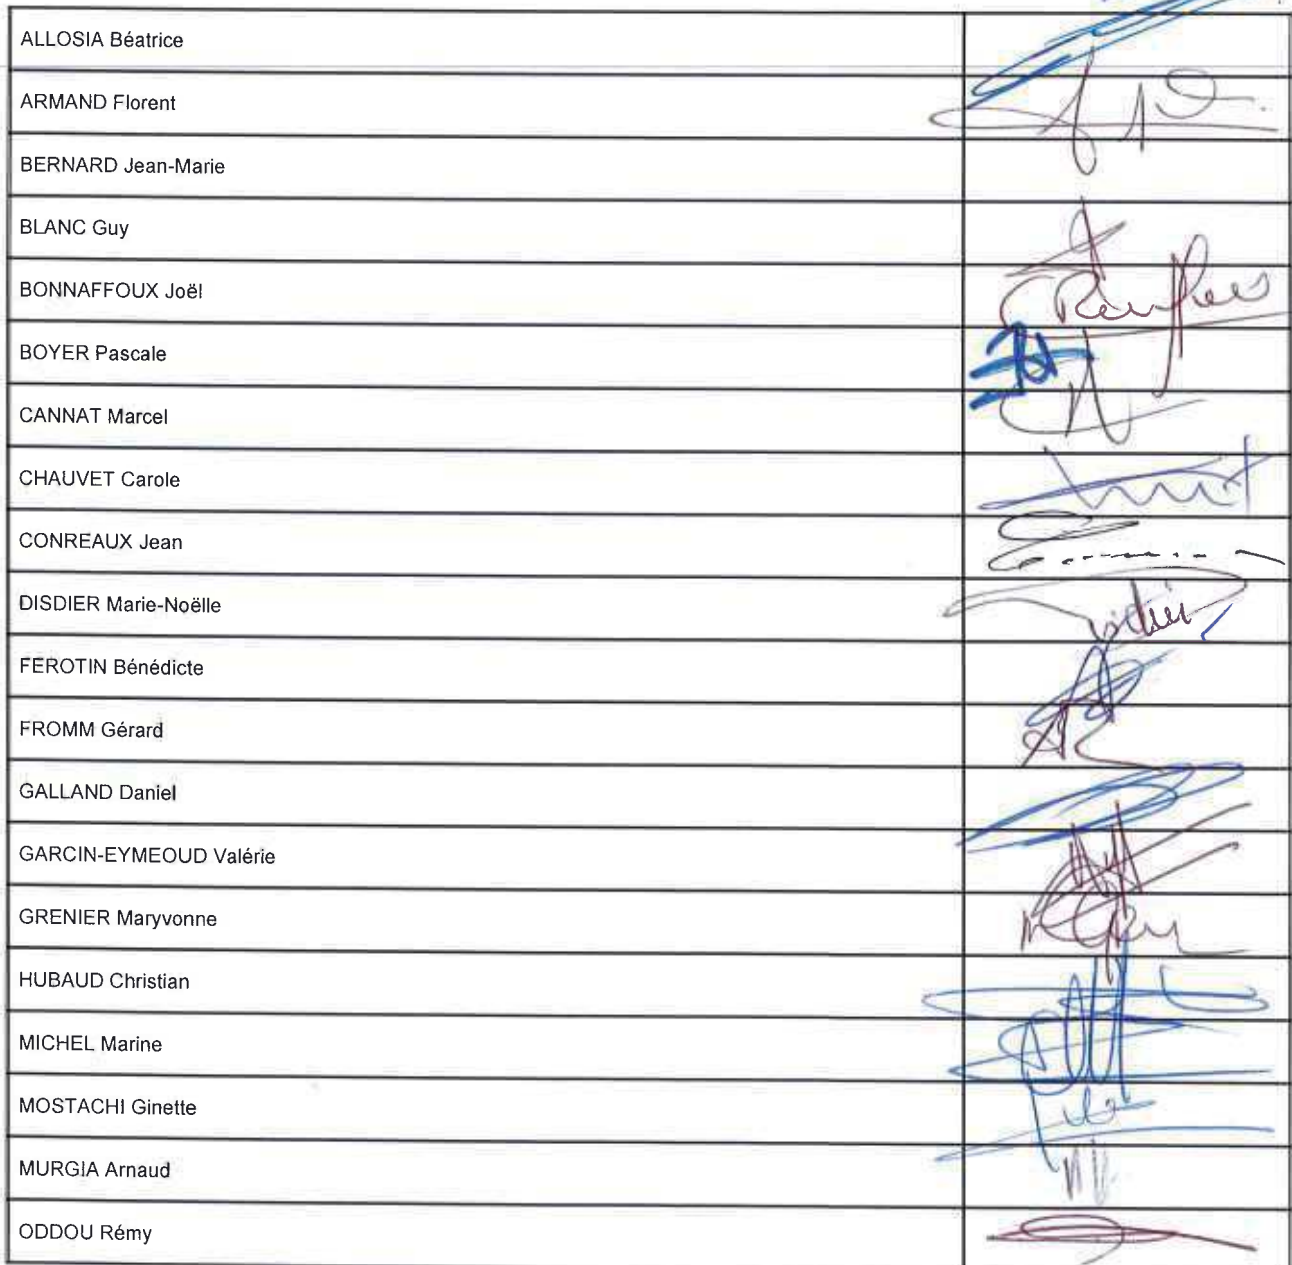 ALLOSIA Béatrice
ARMAND Florent
BERNARD Jean-Marie
BLANC Guy
BONNAFFOUX Joël
BOYER Pascale
CANNAT Marcel
CHAUVET Carole
CONREAUX Jean
DISDIER Marie-Noëlle
FEROTIN Bénédicte
FROMM Gérard
GALLAND Daniel
GARCIN-EYMEOUD Valérie
GRENIER Maryvonne
HUBAUD Christian
MICHEL Marine
MOSTACHI Ginette
MURGIA Arnaud
ODDOU Rémy